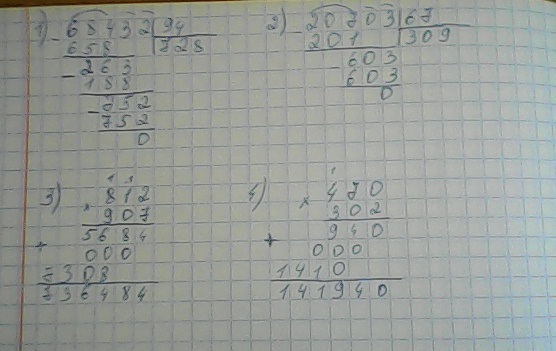 1) - 68432 | 94
658 728
- 263
188
- 752
752
0
2) - 20703 | 67
201 309
- 603
603
0
3) 1 1
812
× 907
5684
+ 000
7308
736484
4) 1
470
× 302
940
+ 000
1410
141940